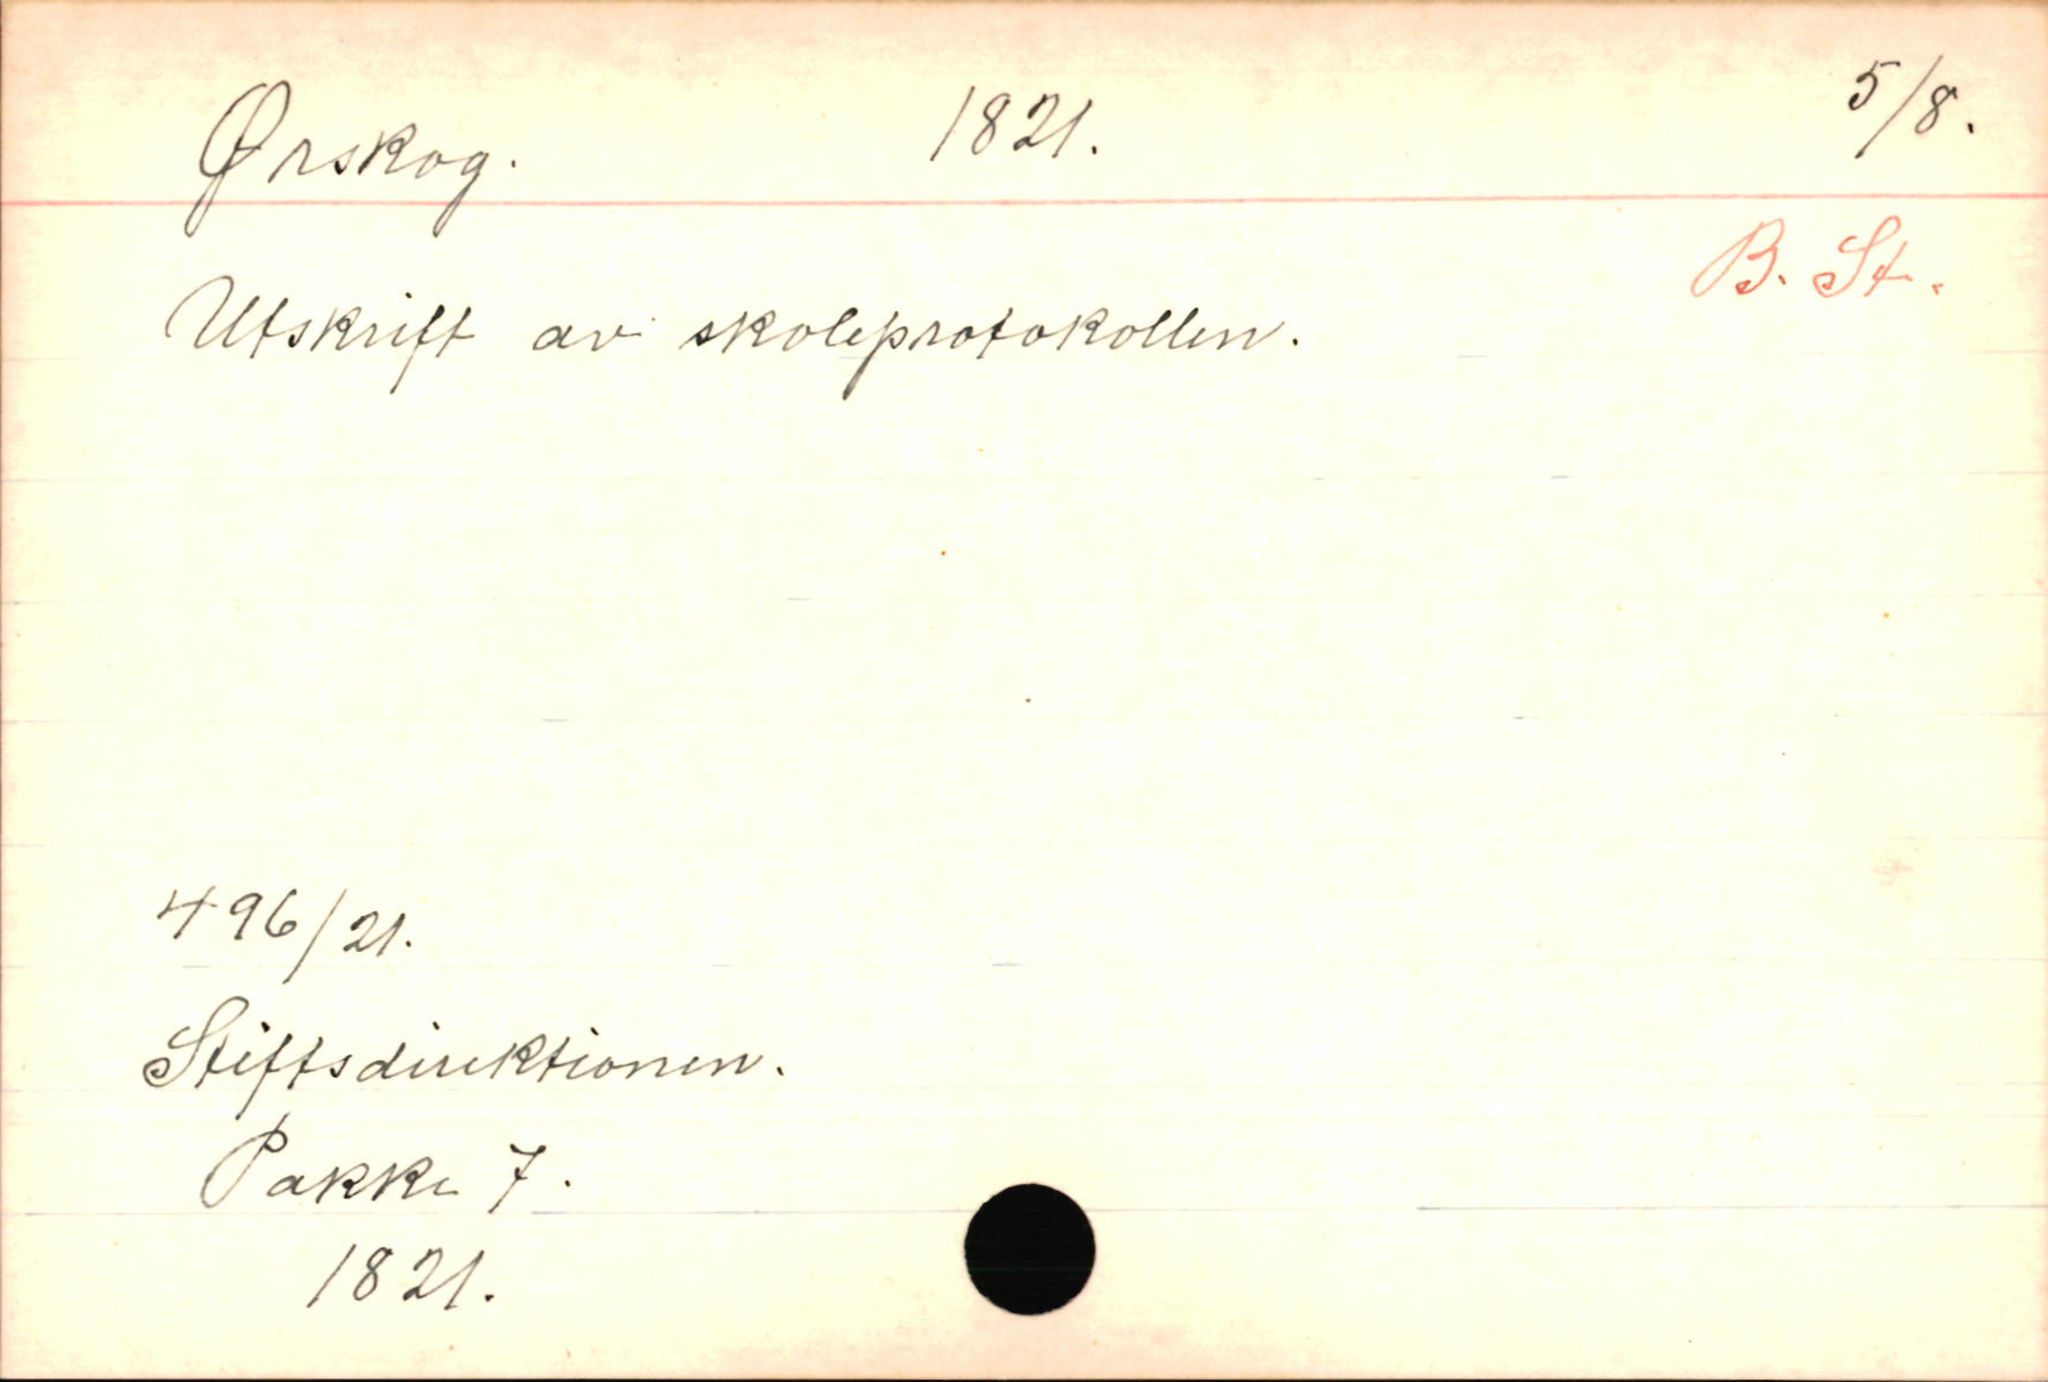 Ørskog. 1821. 5/8.
B. St.
Utskrift av skoleprotokollen.
496/21.
Stiftsdirektionen.
Pakke 7.
1821.